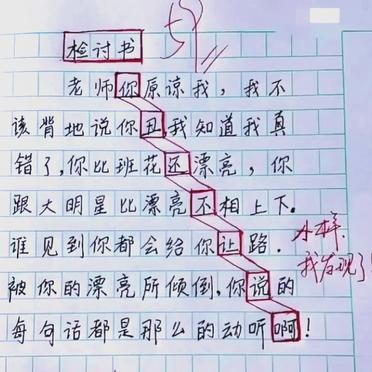 检讨书
59
老师你原谅我，我不
该背地说你丑，我知道我真
错了，你比班花还漂亮，你
跟大明星比漂亮不相上下。
谁见到你都会给你让路．
小样．
我发现了！
被你的漂亮所倾倒，你说的
每句话都是那么的动听啊！